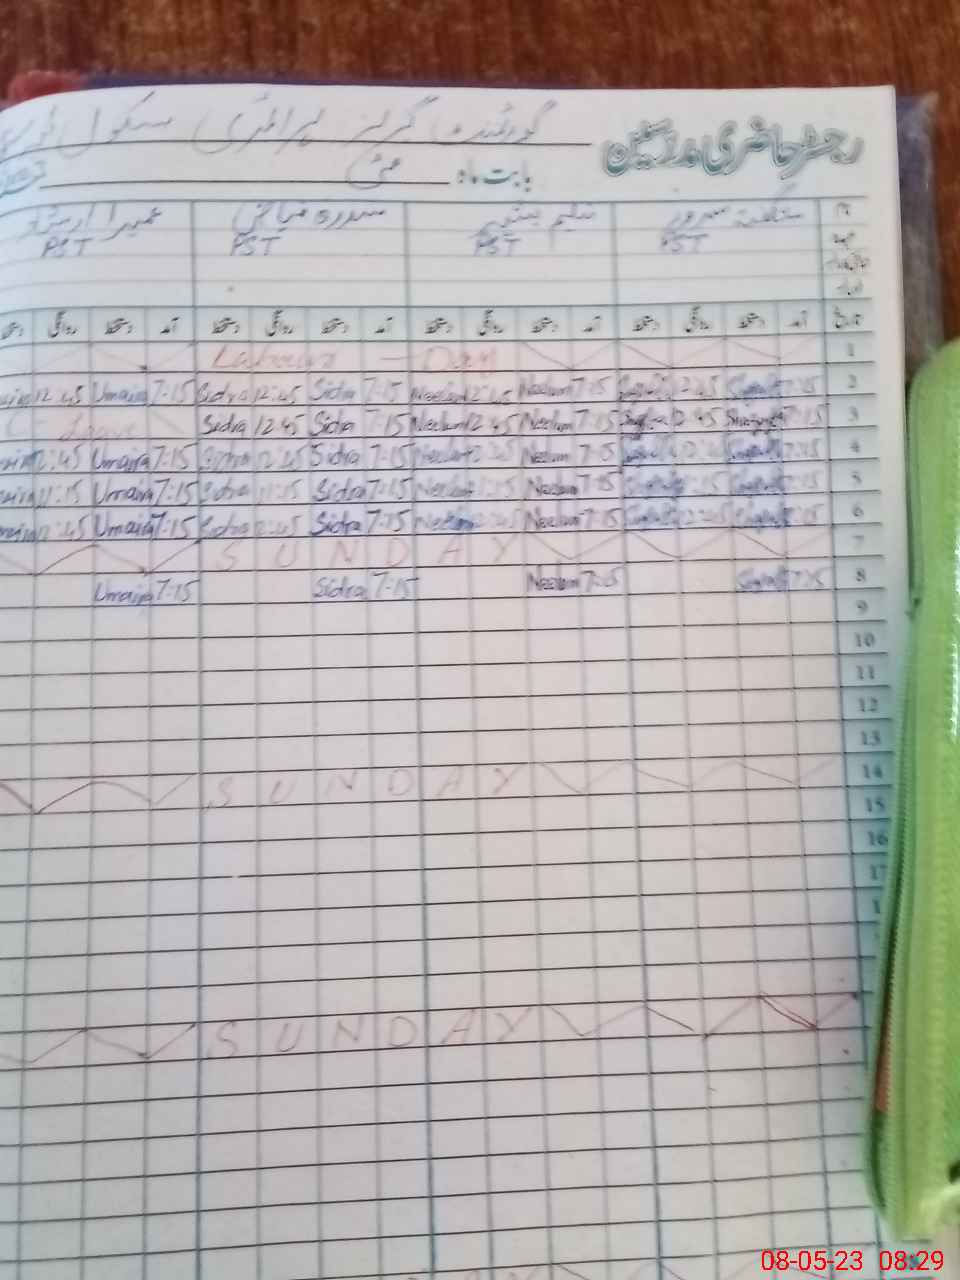 گورنمنٹ گرلز پرائمری سکول
رجسٹر حاضری مدرسین
بابت ماہ: مئی
نام شگفتہ سرور نیلم بشیر سدرہ فیاض عمیرا ارشاد
عہدہ PST PST PST PST
تاریخ آمد دستخط روانگی دستخط آمد دستخط روانگی دستخط آمد دستخط روانگی دستخط آمد دستخط روانگی دستخط
Labour — Day 1
12:45 Umaira 7:15 Sidra 12:45 Sidra 7:15 Neelum 12:45 Neelum 7:15 12:45 7:15 2
Leave Sidra 12:45 Sidra 7:15 Neelum 12:45 Neelum 7:15 12:45 7:15 3
12:45 Umaira 7:15 Sidra 12:45 Sidra 7:15 Neelum 12:45 Neelum 7:15 12:45 7:15 4
11:15 Umaira 7:15 Sidra 11:15 Sidra 7:15 Neelum 11:15 Neelum 7:15 11:15 7:15 5
12:45 Umaira 7:15 Sidra 12:45 Sidra 7:15 Neelum 12:45 Neelum 7:15 12:45 7:15 6
SUNDAY 7
Umaira 7:15 Sidra 7:15 Neelum 7:15 7:15 8
9
10
11
12
13
SUNDAY 14
15
16
17
SUNDAY
08-05-23 08:29